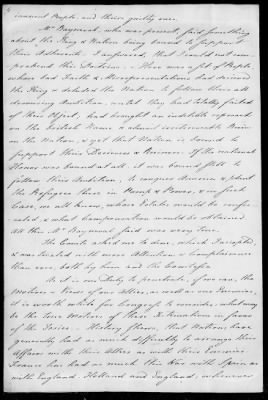 innocent People, and their guilty ones.
Mr Raymond, who was present, said something
about the King & Nation being bound to support
them. Absurd I answered, that I could not com-
prehend this Doctrine. Here was a set of People
whose bad Faith & Misrepresentations had deceived
the King & deluded the Nation to follow their all
devouring Ambition, until they had totally failed
of their Object, had brought an indelible reproach
on the British Name & almost irretrievable Ruin
on the Nation, & yet that Nation is bound to
support their Deceivers & Ruiners. If the national
Honor was bound at all, it was bound still to
follow their Ambition, to conquer America & plant
the Refugees there in Pomp & Power, & in such
Case, we all know, whose Estates would be confis-
cated, & what Compensation would be obtained.
All this Mr Raymond said was very true.
The Comte asked me to dine, which I accepted,
& was treated with more Attention & Complaisance
than ever, both by him and the Comtesse.
As it is our Duty to penetrate, if we can, the
Motives & Views of our Allies, as well as our Enemies,
it is worth while for Congress to consider, what may
be the true Motives of these Intimations in favor
of the Tories. History shows, that Nations have
generally had as much difficulty to arrange their
Affairs with their Allies as with their Enemies.
France has had as much this War with Spain as
with England. Holland and England, whenever